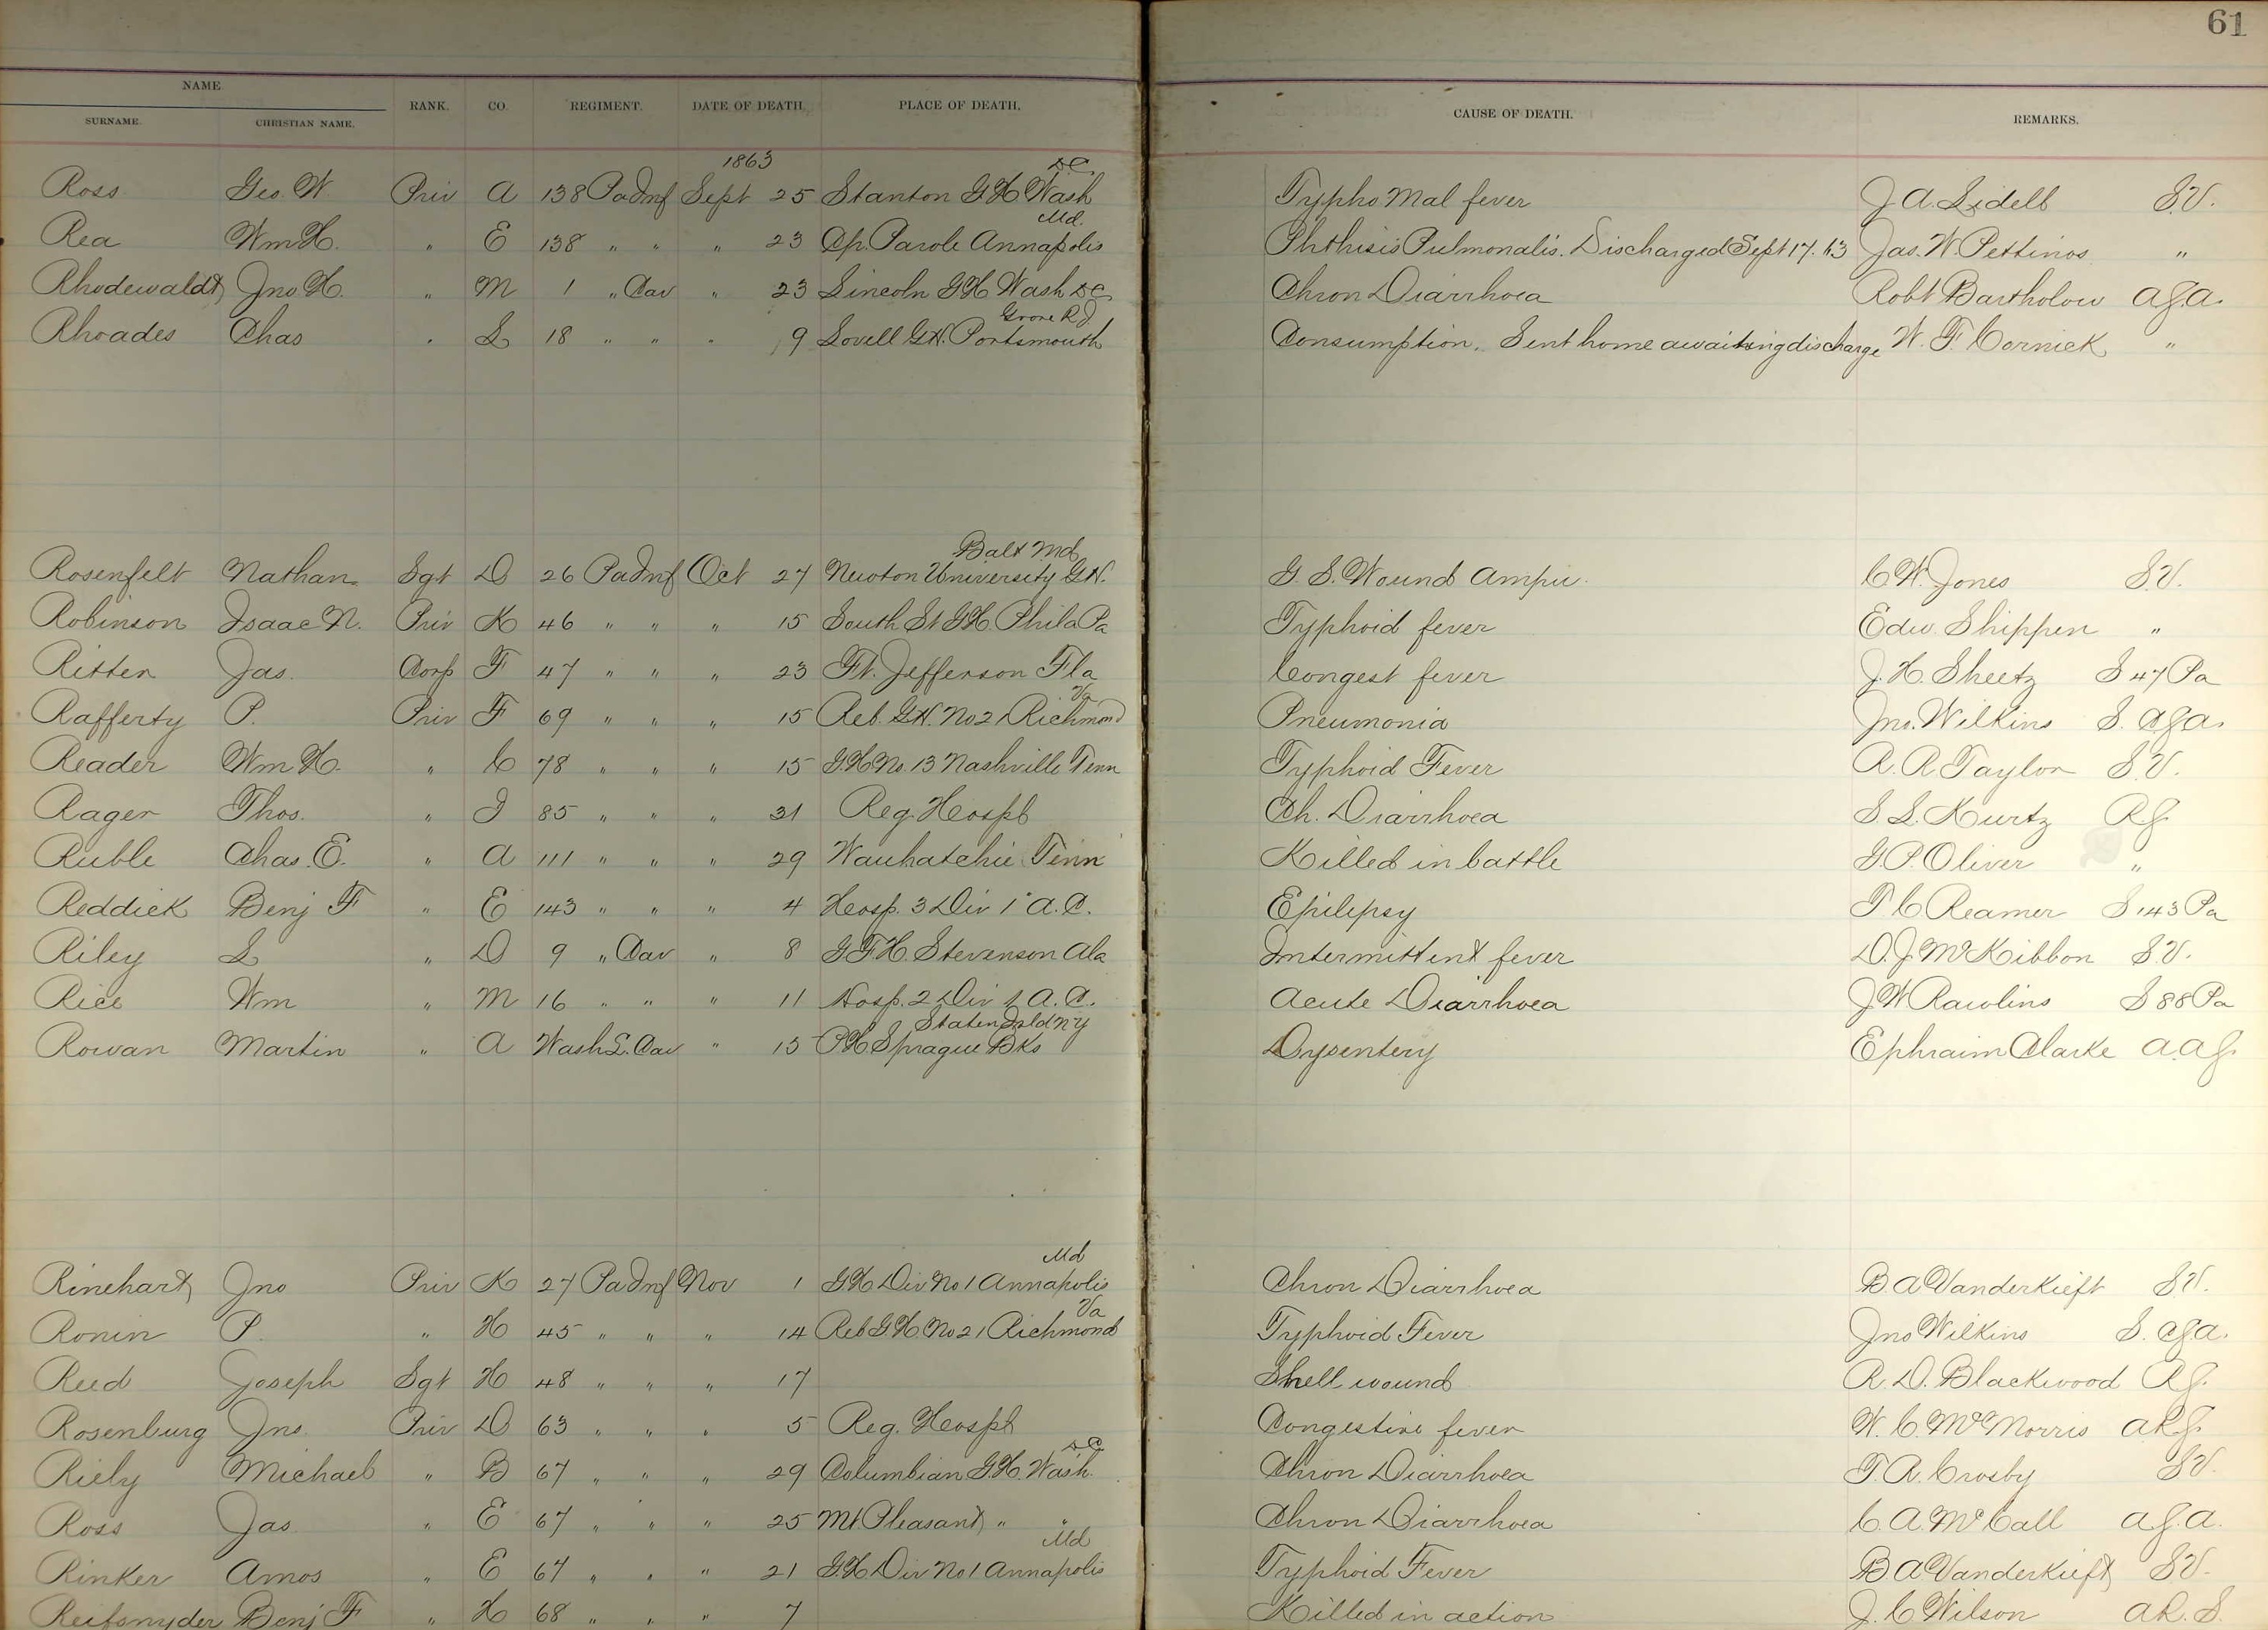 61
NAME
SURNAME. CHRISTIAN NAME. RANK. CO. REGIMENT. DATE OF DEATH. PLACE OF DEATH. CAUSE OF DEATH. REMARKS.
1863 D.C.
Ross Geo. W. Priv A 138 Pa Inf Sept 25 Stanton G.H. Wash Typho Mal fever J A. Lidell S.V.
Md.
Rea Wm H. " E 138 " " " 23 Cp. Parole Annapolis Phthisis Pulmonalis. Discharged Sept 17. 63 Jas. W. Pettinos "
Rhodewaldt Jno. H. " M 1 " Cav " 23 Lincoln G H Wash D.C. Chron Diarrhoea Robt Bartholow a.s.a.
Grove R.I.
Rhoades Chas " L 18 " " " 9 Lovell G.H. Portsmouth Consumption. Sent home awaiting discharge W. F. Cornick "
Balt Md
Rosenfelt Nathan Sgt D 26 Pa Inf Oct 27 Newton University G.H. G S. Wound Ampu. C W. Jones S.V.
Robinson Isaac N. Priv K 46 " " " 15 South St G.H. Phila Pa Typhoid fever Edw. Shippen "
Ritter Jas. Corp F 47 " " " 23 Ft. Jefferson Fla Congest fever J. H. Sheetz S 47 Pa
Va
Rafferty P. Priv F 69 " " " 15 Reb. G.H. No 21 Richmond Pneumonia Jno. Wilkins S. C.S.A.
Reader Wm H. " C 78 " " " 15 G.H. No. 13 Nashville Tenn Typhoid Fever R. R Taylor S.V.
Rager Thos. " I 85 " " " 31 Reg. Hospl Ch. Diarrhoea S. L. Kurtz R.S.
Ruble Chas. E. " A 111 " " " 29 Wauhatchie Tenn Killed in battle G. P. Oliver "
Reddick Benj F " E 143 " " " 4 Hosp. 3 Div 1" A. C. Epilepsy F. C Reamer S 143 Pa
Riley L " D 9 " Cav " 8 G.F.H. Stevenson Ala Intermittent fever D. J. McKibbon S.V.
Rice Wm " M 16 " " " 11 Hosp. 2 Div 1 A. C. Acute Diarrhoea J W Rawlins S 88 Pa
Staten Isld N Y
Rowan Martin " A Wash L. Cav " 15 P.H. Sprague Bks Dysentery Ephraim Clarke a.a.s.
Md
Rinehart Jno Priv K 27 Pa Inf Nov 1 G H Div No 1 Annapolis Chron Diarrhoea B. A Vanderkieft S.V.
Va
Ronin P. " H 45 " " " 14 Reb G.H. No 21 Richmond Typhoid Fever Jno Wilkins S. C.S.A.
Reed Joseph Sgt H 48 " " " 17 Shell wound R. D. Blackwood R.S.
Rosenburg Jno. Priv D 63 " " " 5 Reg. Hospl Congestive fever W. C. McMorris a.R.S.
D.C.
Riely Michael " B 67 " " " 29 Columbian G.H. Wash. Chron Diarrhoea T. R. Crosby S.V.
Ross Jas " E 67 " " " 25 Mt Pleasant " " Chron Diarrhoea C. A. McCall a.s.a.
Md
Rinker Amos " E 67 " " " 21 G H Div No 1 Annapolis Typhoid Fever B A Vanderkieft S.V.
Reifsnyder Benj F " H 68 " " " 7 Killed in action J. C Wilson a.R.S.